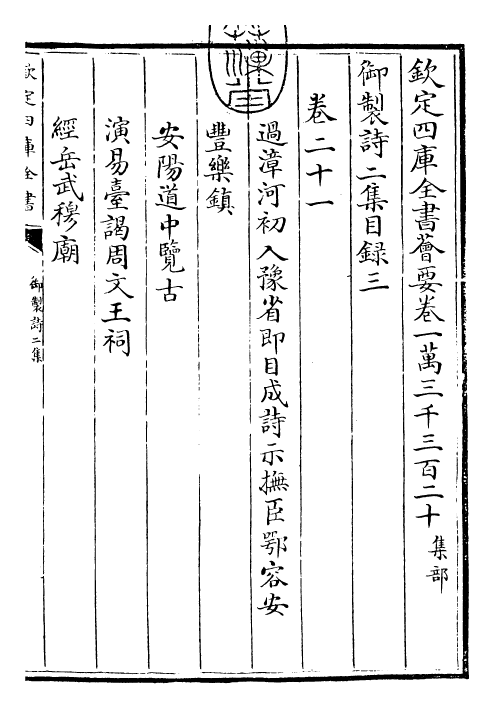 欽定四庫全書薈要卷一萬三千三百二十 集部
御製詩二集目録三
卷二十一
過漳河初入豫省即目成詩示撫臣鄂容安
豐樂鎮
安陽道中覽古
演易臺謁周文王祠
經岳武穆廟
欽定四庫全書
御製詩二集